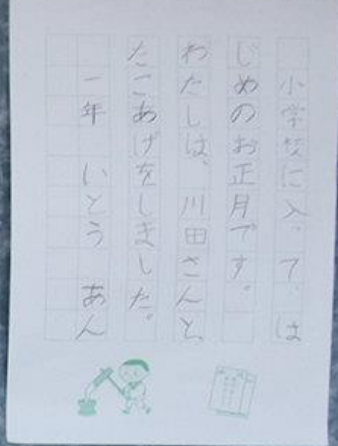 小学校に入って、は
じめのお正月です。
わたしは、川田さんと、
たこあげをしました。
一年 いとう あん